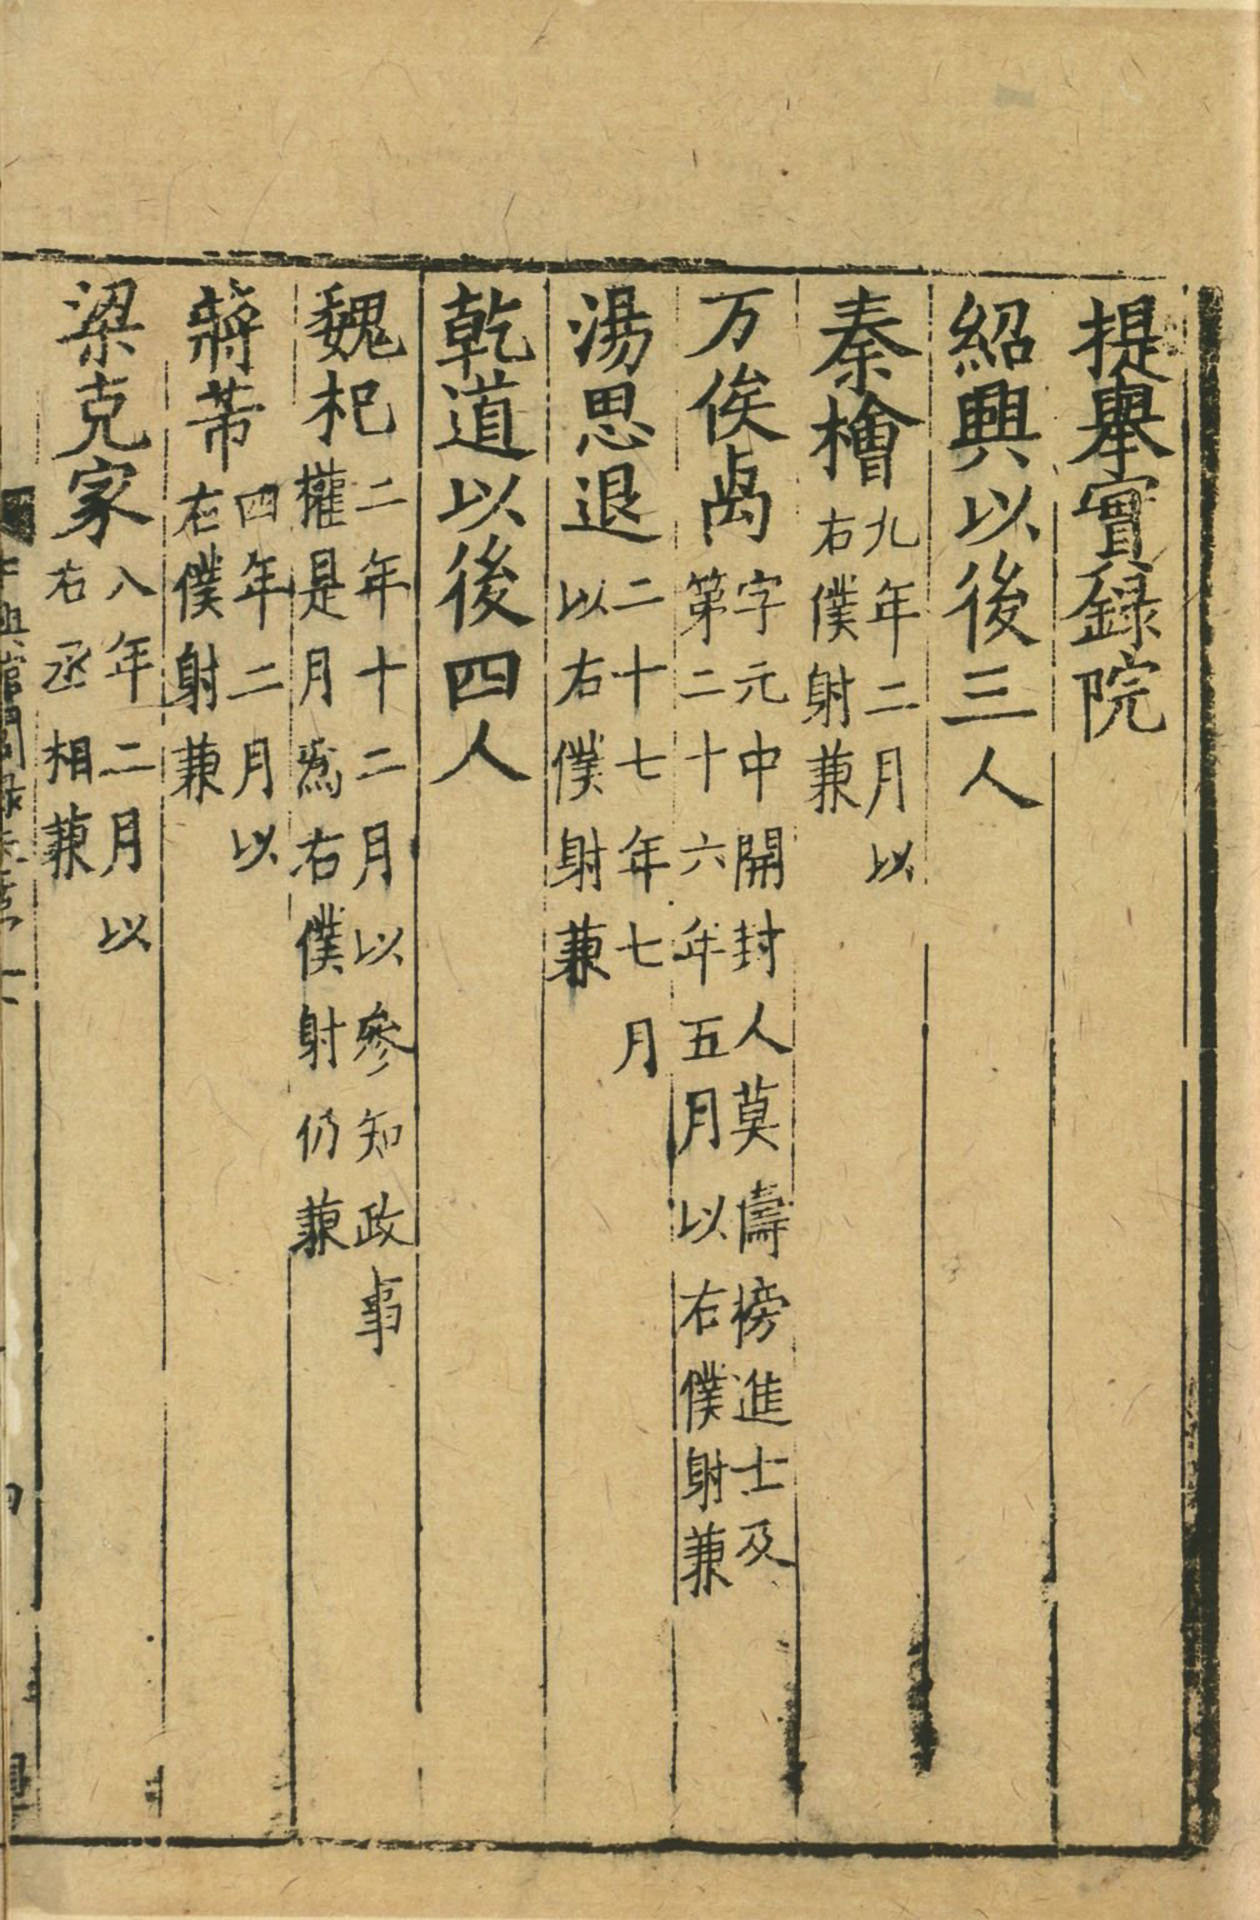 提舉實錄院
紹興以後三人
秦檜九年二月以右僕射兼
万俟卨字元中開封人莫儔榜進士及第二十六年五月以右僕射兼
湯思退二十七年七月以右僕射兼
乾道以後四人
魏杞二年十二月以參知政事權是月爲右僕射仍兼
蔣芾四年二月以右僕射兼
梁克家八年二月以右丞相兼